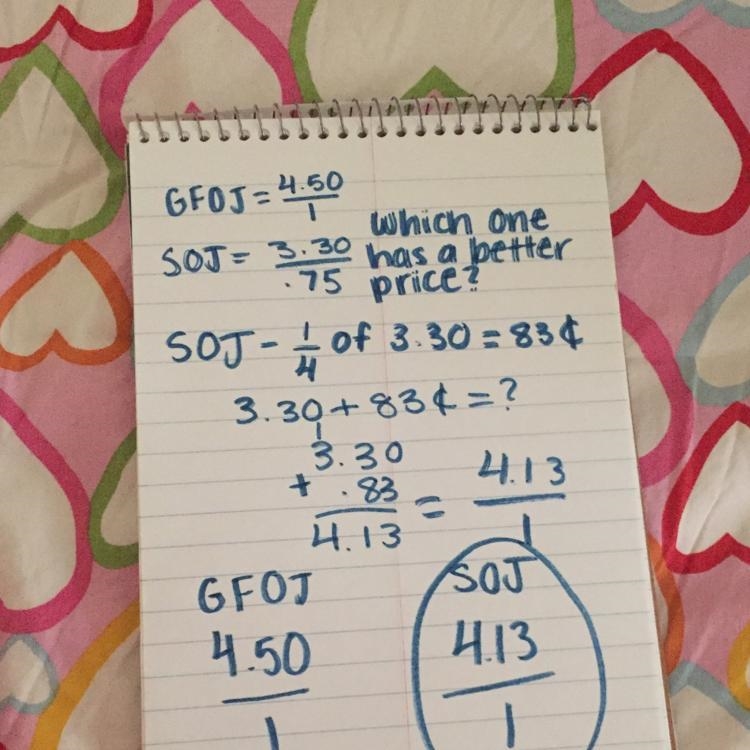 GFOJ = 4.50/1
SOJ = 3.30/.75
which one
has a better
price?
SOJ - 1/4 of 3.30 = 83¢
3.30 + 83¢ = ?
1
3.30
+ .83 = 4.13/1
4.13
GFOJ
4.50
1
SOJ
4.13
1